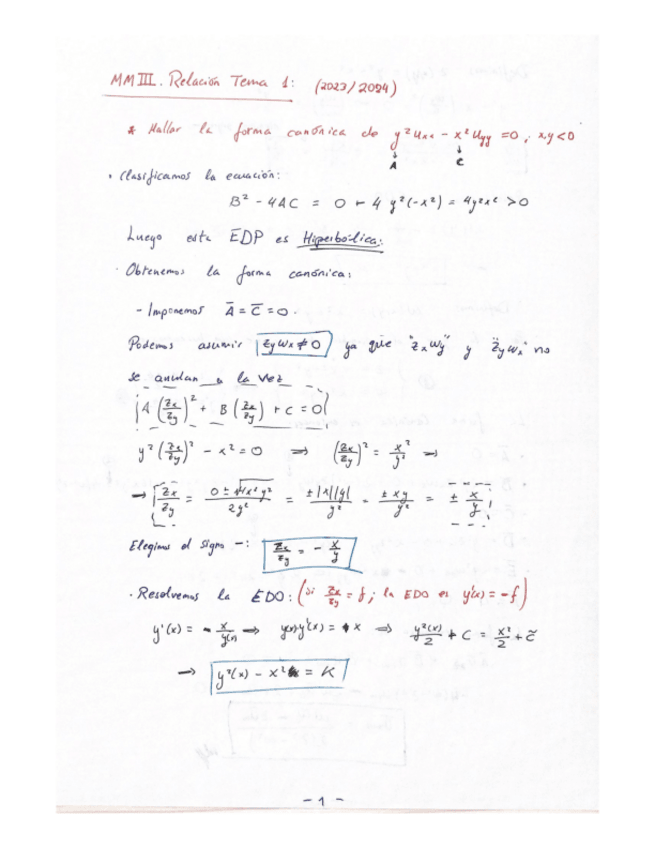 MM III. Relación Tema 1: (2023/2024)
* Hallar la forma canónica de y²u_xx - x²u_yy = 0, xy<0
↓ ↓
A C
· Clasificamos la ecuación:
B² - 4AC = 0 - 4 y²(-x²) = 4y²x² > 0
Luego esta EDP es Hiperbólica:
· Obtenemos la forma canónica:
- Imponemos A̅ = C̅ = 0.
Podemos asumir z_y w_x ≠ 0 ya que "z_x w_y" y "z_y w_x" no
se anulan a la vez
A (z_x/z_y)² + B (z_x/z_y) + C = 0
y² (z_x/z_y)² - x² = 0 ⇒ (z_x/z_y)² = x²/y² ⇒
→ z_x/z_y = 0 ± √4x²y² / 2y² = ±|x||y| / y² = ± xy / y² = ± x/y
Elegimos el signo -: z_x/z_y = - x/y
· Resolvemos la EDO: (si z_x/z_y = f; la EDO es y'(x) = -f)
y'(x) = - x/y(x) ⇒ y(x)y'(x) = x ⇒ y²(x)/2 + C = x²/2 + c̃
→ y²(x) - x² = K
- 1 -